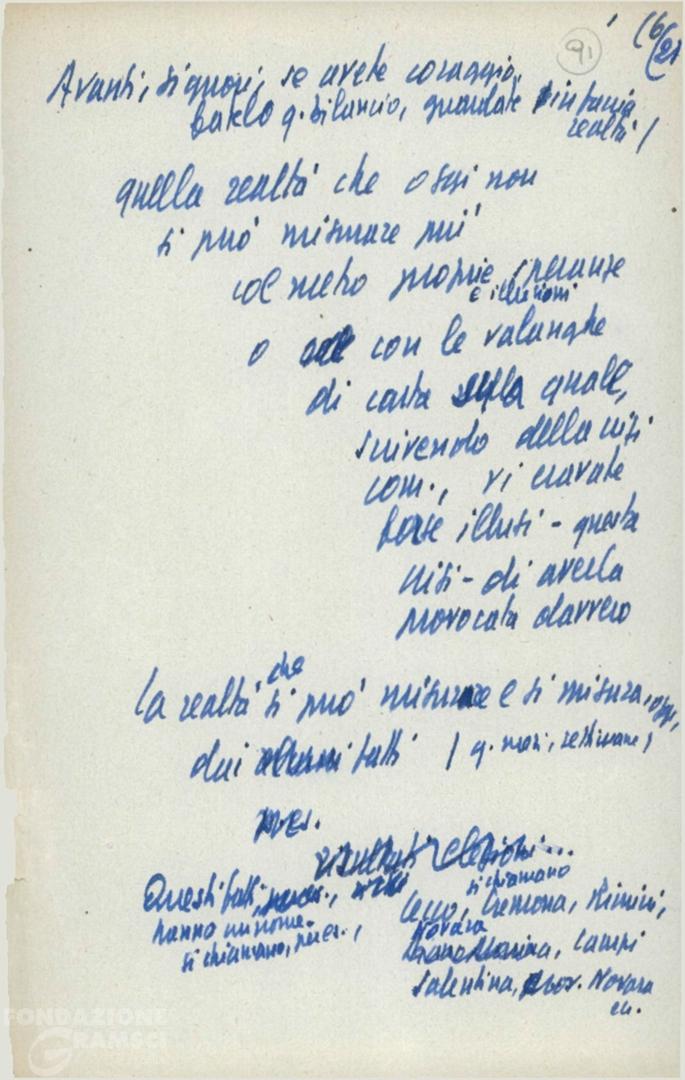 91
16/21
Avanti, signori, se avete coraggio,
fatelo q. bilancio, guardate in faccia
realtà!
quella realtà che oggi non
si può misurare più
col metro proprie speranze
e illusioni
o con le valanghe
di carta sulla quale,
scrivendo della crisi
com., vi eravate
forse illusi - questa
crisi - di averla
provocata davvero
la realtà che si può misurare e si misura, oggi,
dai fatti (q. mesi, settimane)
risultati elezioni...
Questi fatti,
hanno un nome.
si chiamano, per es.,
si chiamano
Lecco, Cremona, Rimini,
Novara
Campi
Salentina, prov. Novara
ecc.
FONDAZIONE
GRAMSCI